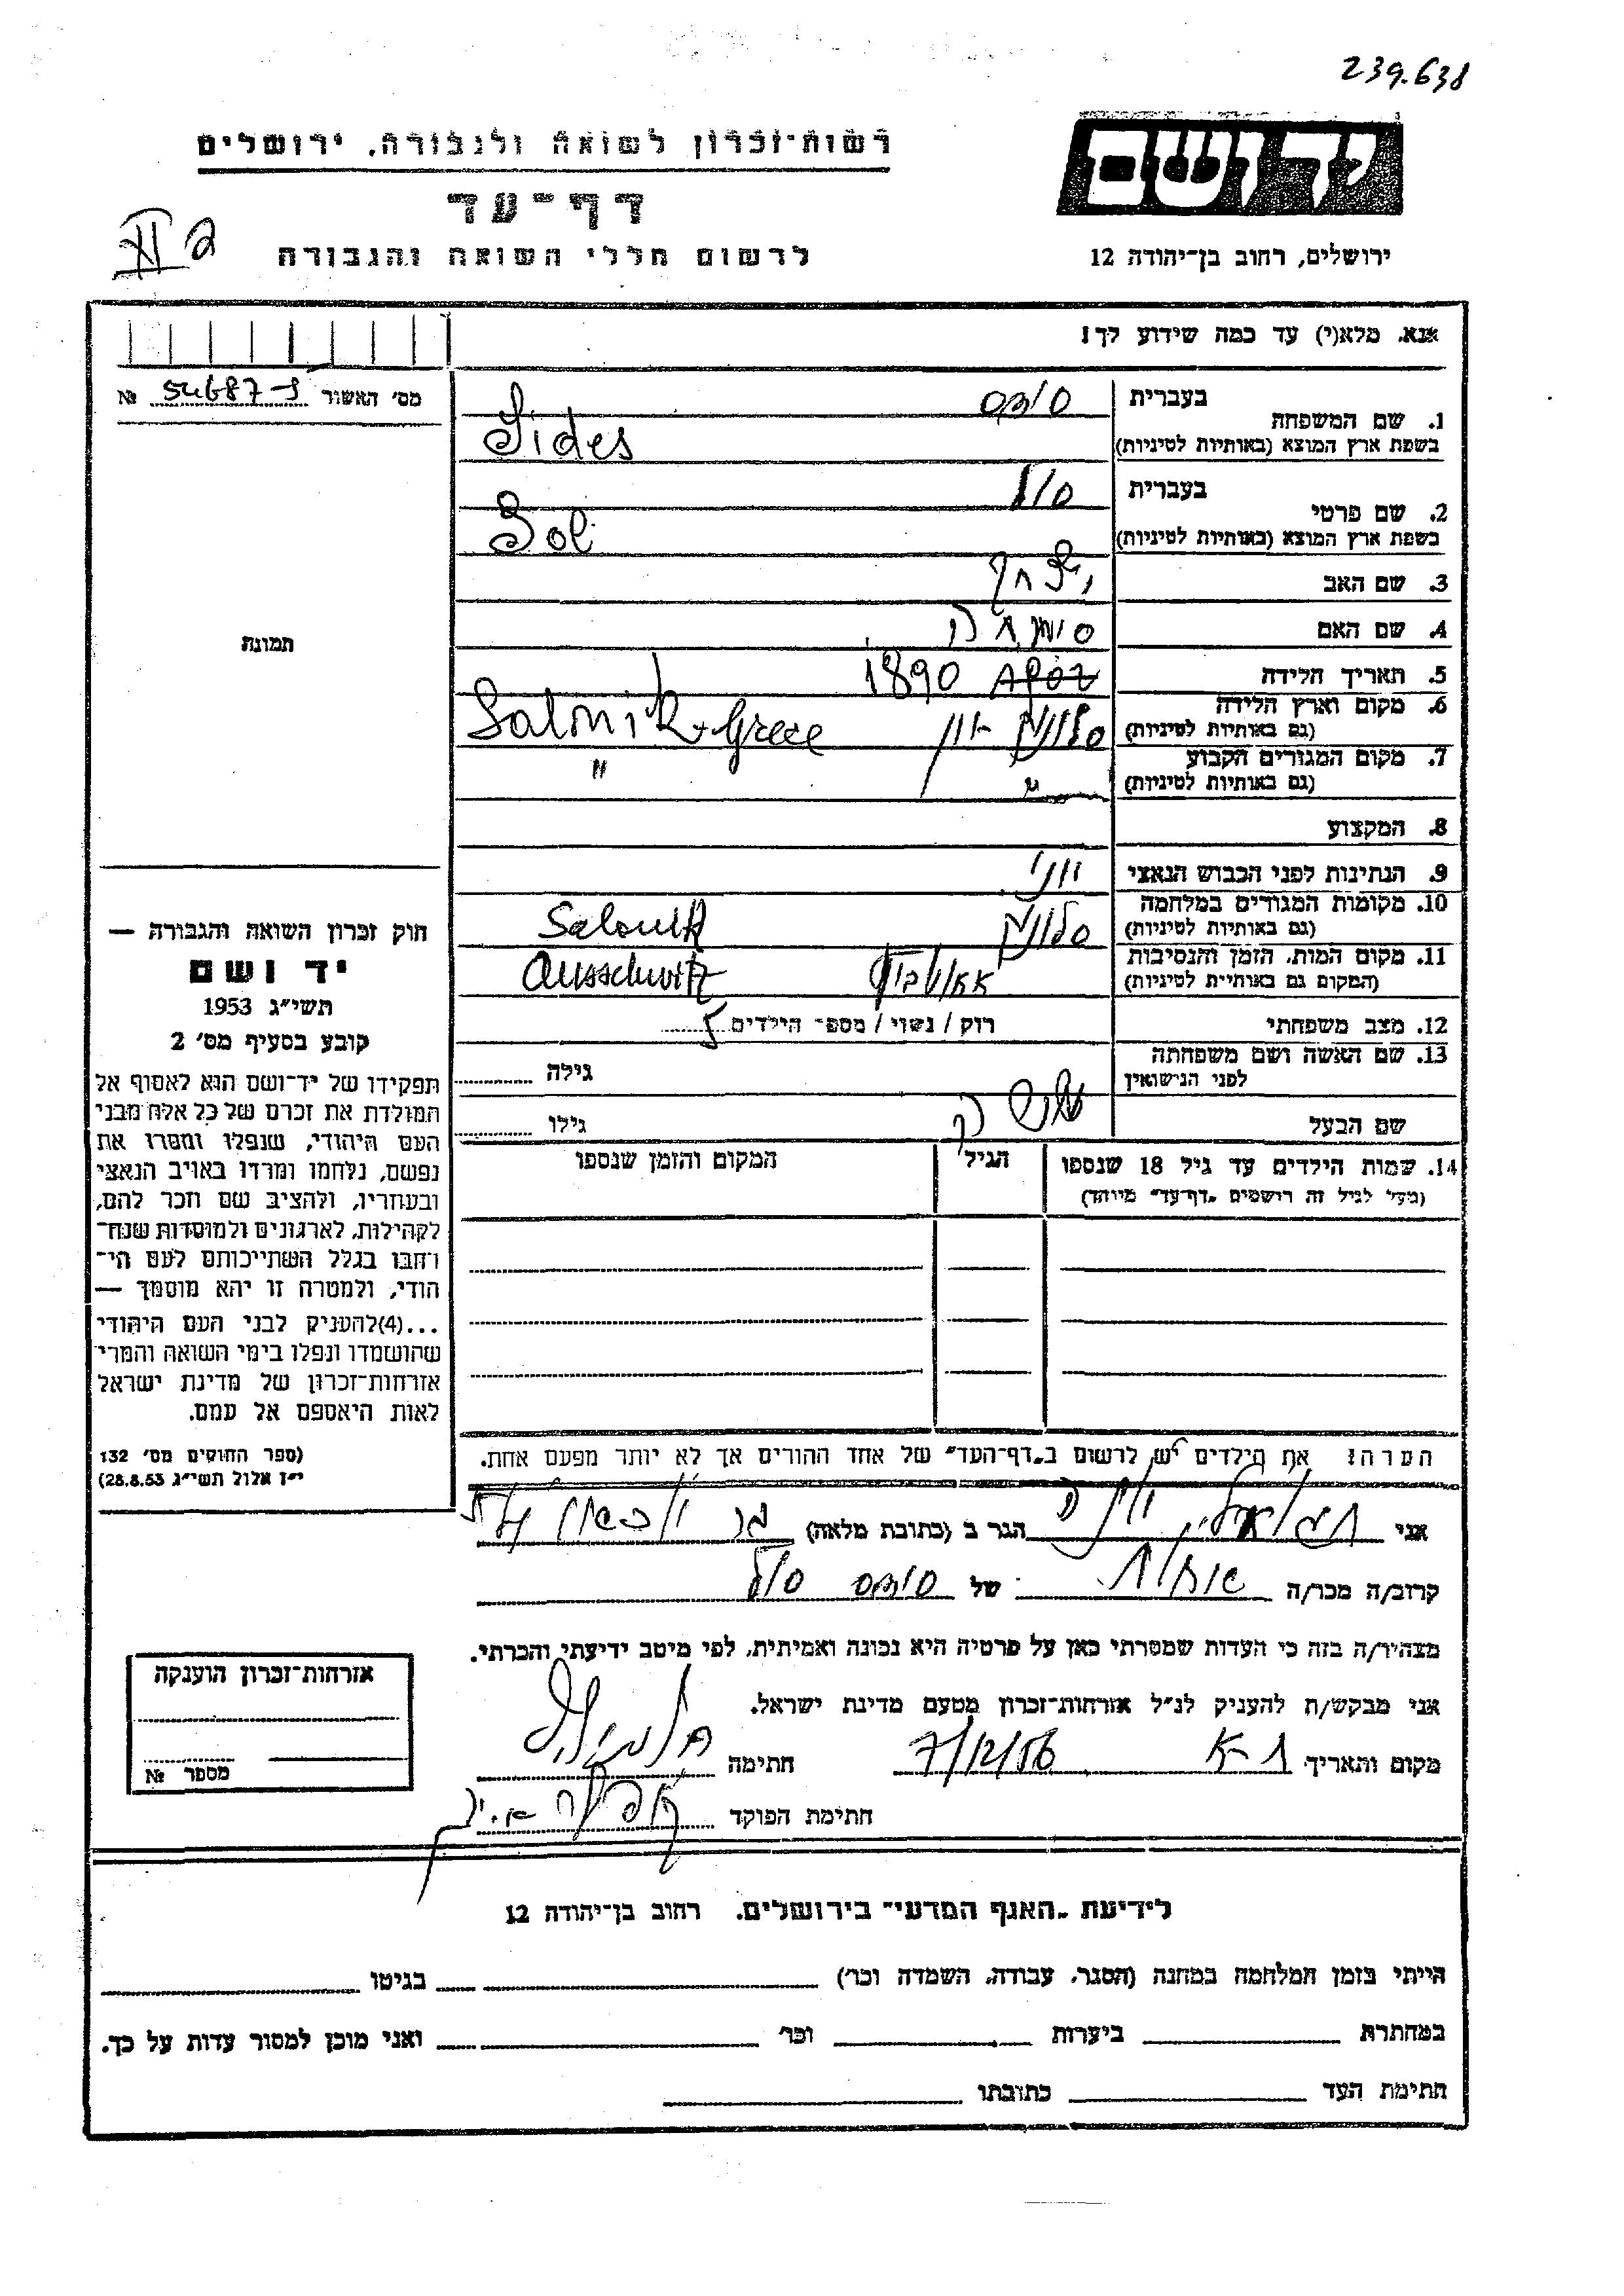 239.638
רשות-זכרון לשואה ולגבורה, ירושלים
יד ושם
דף-עד
לרשום חללי השואה והגבורה
ירושלים, רחוב בן-יהודה 12
אנא, מלא(י) עד כמה שידוע לך!
מס' האשור 54687-9 №
1. שם המשפחה בעברית סידס
בשפת ארץ המוצא (באותיות לטיניות) Sides
2. שם פרטי בעברית סול
בשפת ארץ המוצא (באותיות לטיניות) Sol
3. שם האב יצחק
4. שם האם שמחה
5. תאריך הלידה 1890
6. מקום וארץ הלידה (גם באותיות לטיניות) סלוניק יון Salonik Grece
7. מקום המגורים הקבוע (גם באותיות לטיניות) " "
8. המקצוע
9. הנתינות לפני הכבוש הנאצי יוני
10. מקומות המגורים במלחמה (גם באותיות לטיניות) סלוניק Salonik
11. מקום המות, הזמן והנסיבות (המקום גם באותיות לטיניות) אאושביץ Ausschwitz
12. מצב משפחתי רוק / נשוי / מספר הילדים 5
13. שם האשה ושם משפחתה לפני הנישואין גילה
שם הבעל גילו
14. שמות הילדים עד גיל 18 שנספו הגיל המקום והזמן שנספו
(מעל לגיל זה רושמים "דף-עד" מיוחד)
תמונה
חוק זכרון השואה והגבורה —
יד ושם
תשי"ג 1953
קובע בסעיף מס' 2
תפקידו של יד-ושם הוא לאסוף אל
המולדת את זכרם של כל אלה מבני
העם היהודי, שנפלו ומסרו את
נפשם, נלחמו ומרדו באויב הנאצי
ובעוזריו, ולהציב שם וזכר להם,
לקהילות, לארגונים ולמוסדות שנח-
רחבו בגלל השתייכותם לעם הי-
הודי, ולמטרה זו יהא מוסמך —
...(4)להעניק לבני העם היהודי
שהושמדו ונפלו בימי השואה והמרי
אזרחות-זכרון של מדינת ישראל
לאות היאספם אל עמם.
(ספר החוקים מס' 132
י"ז אלול תשי"ג 28.8.53)
הערה: את הילדים יש לרשום ב"דף-העד" של אחד ההורים אך לא יותר מפעם אחת.
אני הגר ב (כתובת מלאה)
קרוב/ה מכר/ה אחות של סידס סול
מצהיר/ה בזה כי העדות שמסרתי כאן על פרטיה היא נכונה ואמיתית, לפי מיטב ידיעתי והכרתי.
אני מבקש/ת להעניק לנ"ל אזרחות-זכרון מטעם מדינת ישראל.
מקום ותאריך ת-א 7/12/56 חתימה
חתימת הפוקד
אזרחות-זכרון הוענקה
מספר №
לידיעת "האגף המדעי" בירושלים, רחוב בן-יהודה 12
הייתי בזמן המלחמה במחנה (הסגר, עבודה, השמדה וכו') בגיטו
במחתרת ביערות וכו' ואני מוכן למסור עדות על כך.
חתימת העד כתובתו